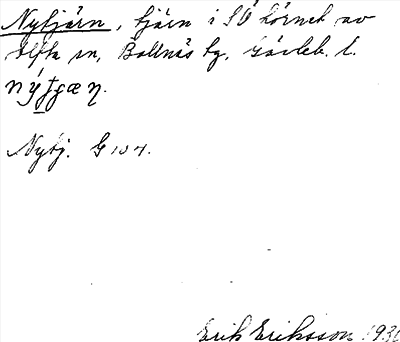 Nytjärn, tjärn i SÖ hörnet av
Alfta sn, Bollnäs tg, Gävleb. l.
Nytj. G 104.
Erik Eriksson 193